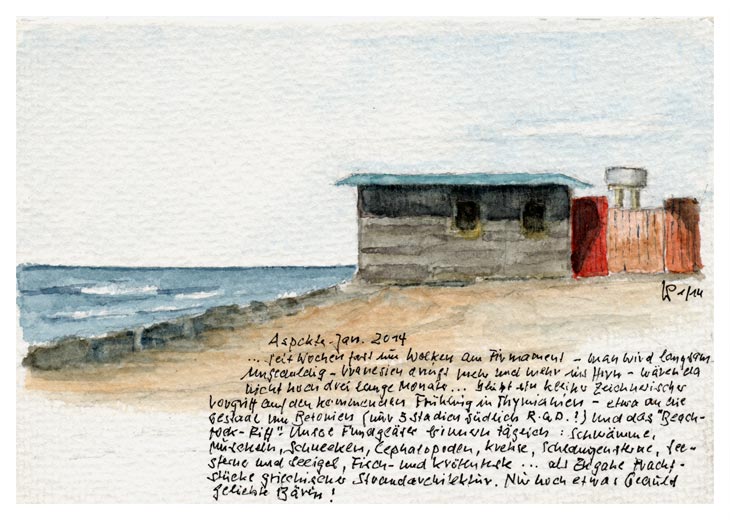 Aspekte. Jan. 2014
... seit Wochen fast nur Wolken am Firmament - man wird langsam
ungeduldig - dringt mehr und mehr ins Hirn - wären da
nicht noch drei lange Monate... bleibt ein kleiner zeichnerischer
Vorgriff auf den kommenden Frühling in Thymianien - etwa an die
Gestade um Betonien (nur 3 Stadien südlich R.G.D.!) und das "Beach-
rock-Riff". Unsre Fundgläser erinnern täglich: Schwämme,
Muscheln, Schnecken, Cephalopoden, Krebse, Schlangensterne, See-
sterne und Seeigel, Fisch- und Krötenteile ... als Zugabe Pracht-
stücke griechischer Strandarchitektur. Nur noch etwas Geduld
geliebte Bärin!